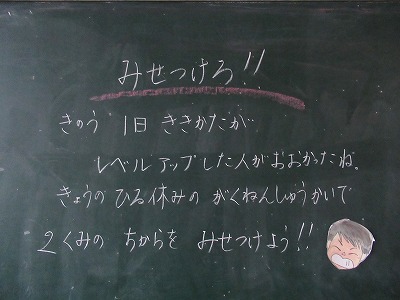 みせつけろ!!
きのう 1日 ききかたが
レベルアップした人がおおかったね。
きょうの ひる休みの がくねんしゅうかいで
2くみの ちからを みせつけよう!!